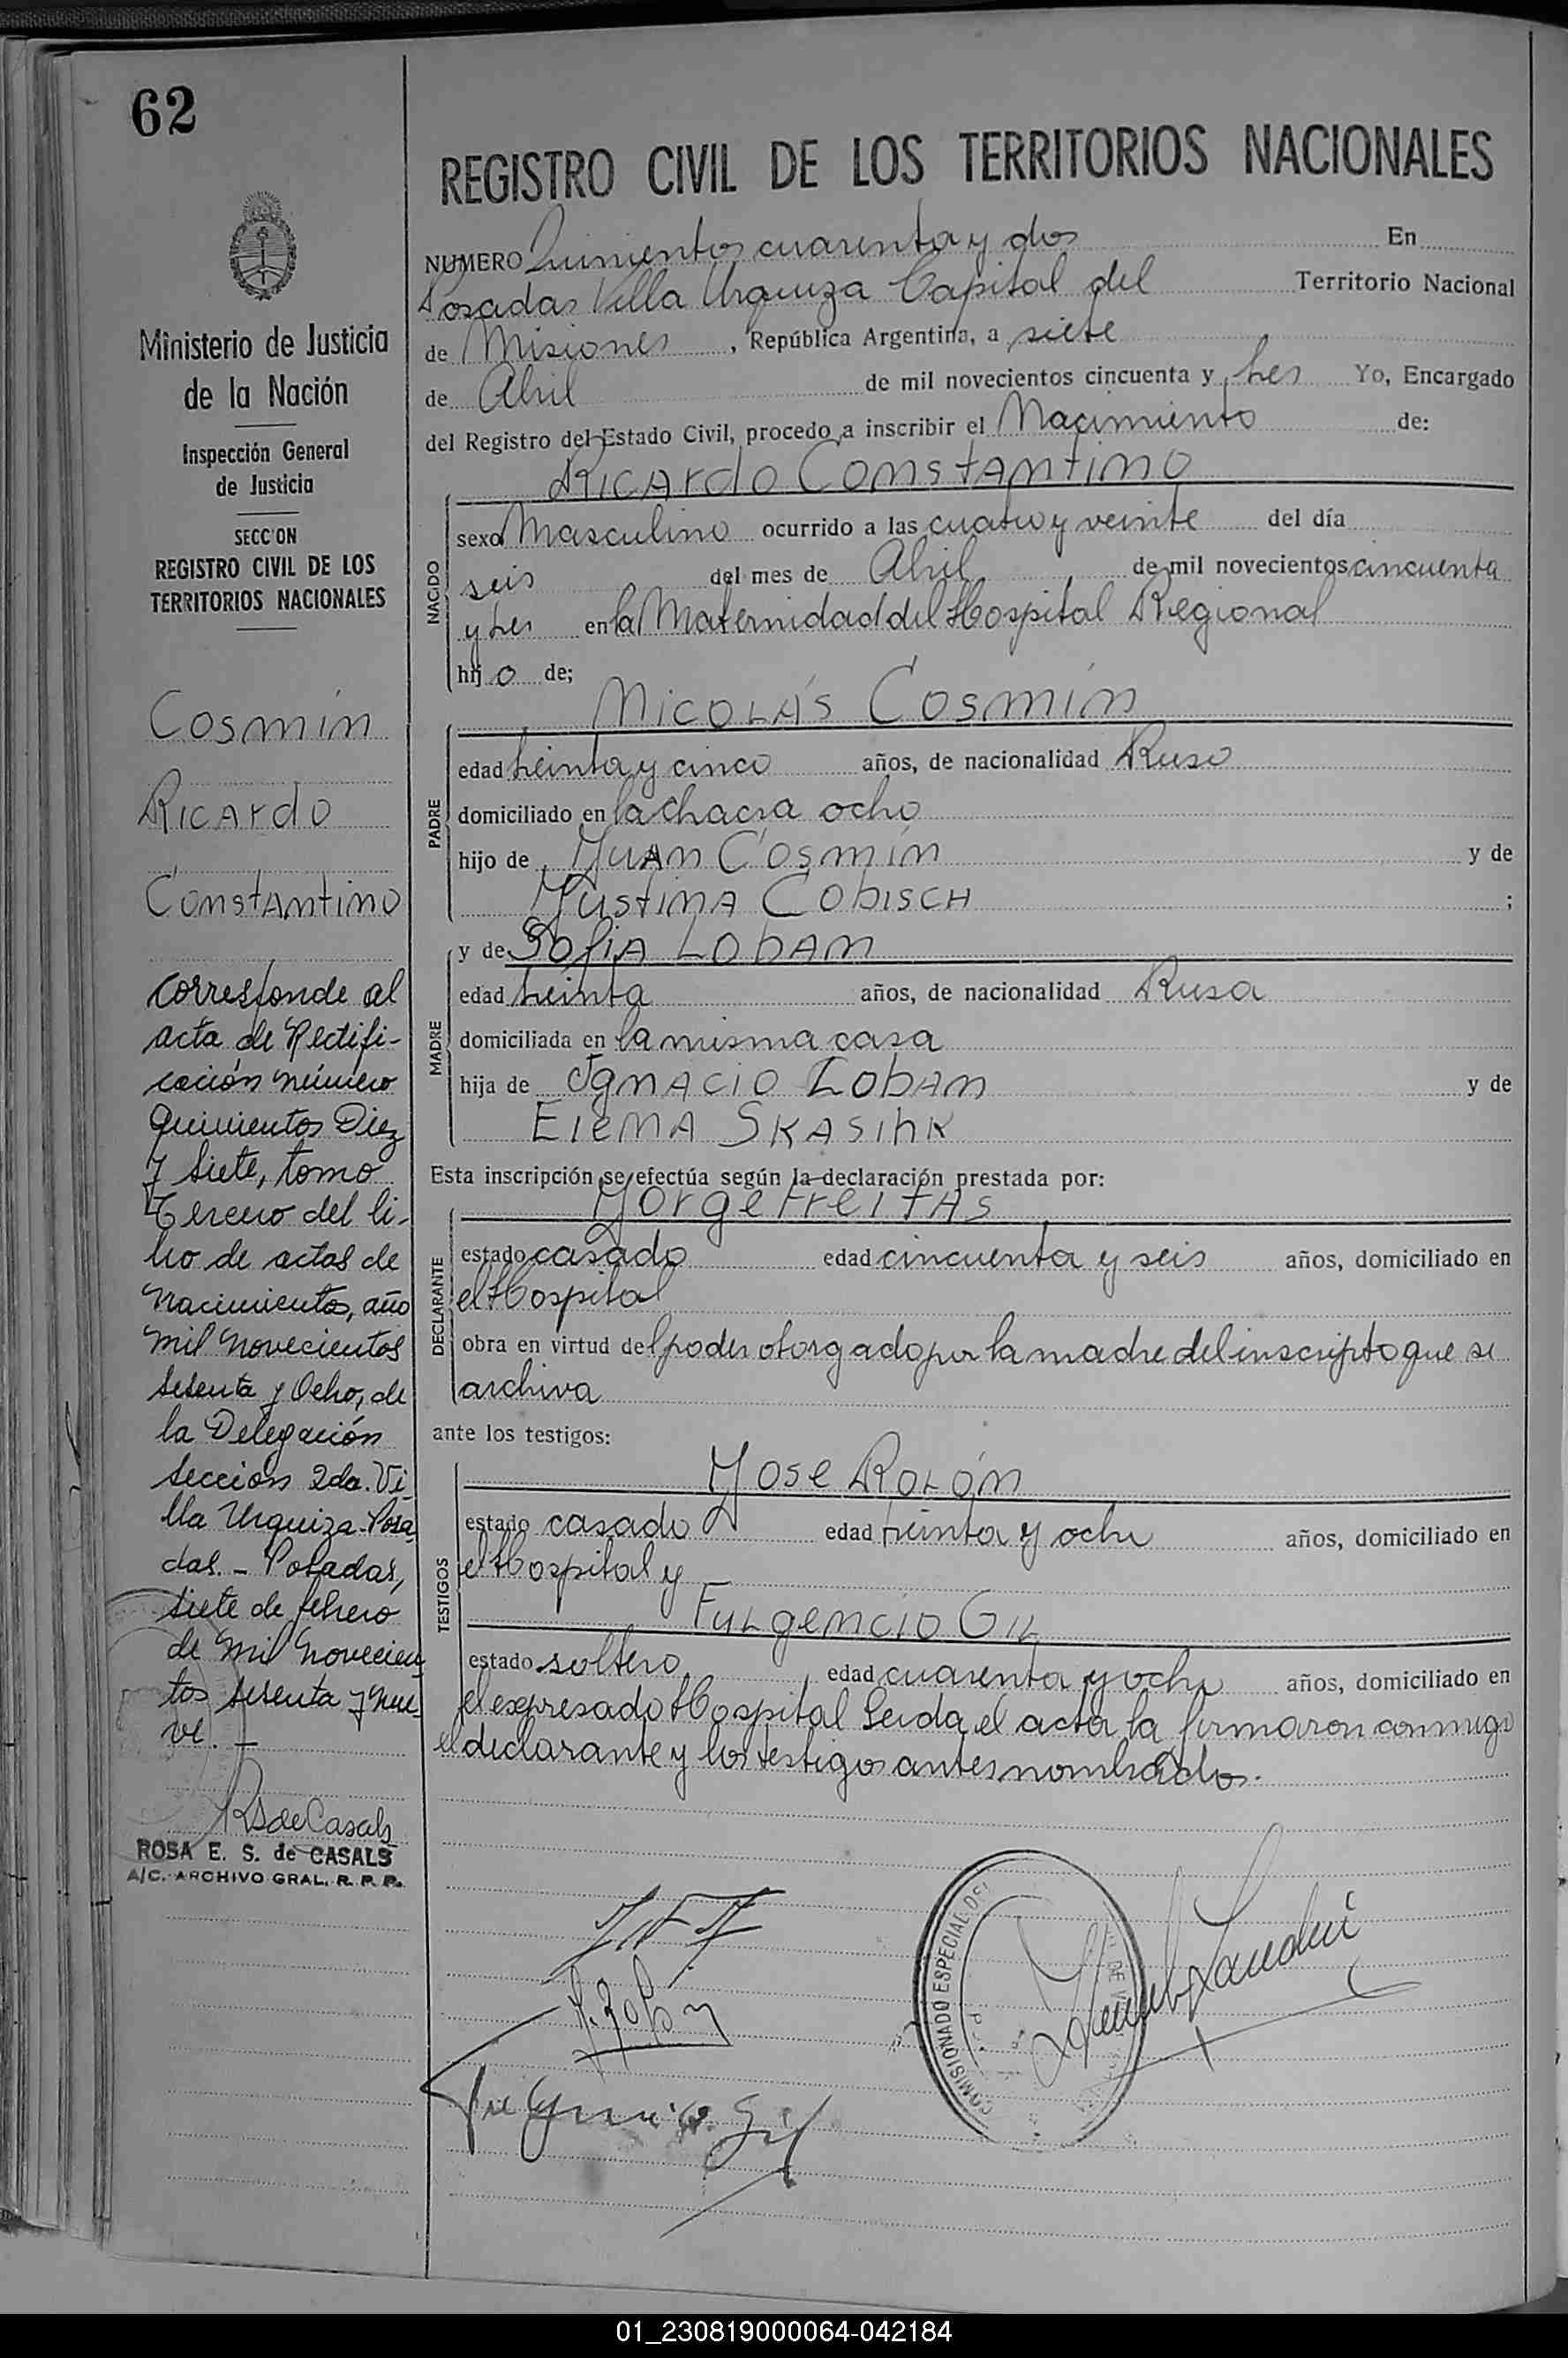 62
REGISTRO CIVIL DE LOS TERRITORIOS NACIONALES
NUMERO Quinientos cuarenta y dos En
Posadas Villa Urquiza Capital del Territorio Nacional
de Misiones, República Argentina, a siete
de Abril de mil novecientos cincuenta y tres Yo, Encargado
del Registro del Estado Civil, procedo a inscribir el Nacimiento de:
Ricardo Constantino
NACIDO
sexo Masculino ocurrido a las cuatro y veinte del día
seis del mes de Abril de mil novecientos cincuenta
y tres en la Maternidad del Hospital Regional
hijo de;
Nicolás Cosmín
PADRE
edad treinta y cinco años, de nacionalidad Ruso
domiciliado en la chacra ocho
hijo de Juan Cosmín y de
Justina Cobisch ;
y de Sofia Loban
MADRE
edad treinta años, de nacionalidad Rusa
domiciliada en la misma casa
hija de Ignacio Loban y de
Elena Skasihk
Esta inscripción se efectúa según la declaración prestada por:
Jorge Freitas
DECLARANTE
estado casado edad cincuenta y seis años, domiciliado en
el Hospital
obra en virtud del poder otorgado por la madre del inscripto que se
archiva
ante los testigos:
Jose Rolón
TESTIGOS
estado casado edad treinta y ocho años, domiciliado en
el Hospital y
Fulgencio Gil
estado soltero edad cuarenta y ocho años, domiciliado en
el expresado Hospital Leida el acta la firmaron conmigo
el declarante y los testigos antes nombrados.
Ministerio de Justicia
de la Nación
Inspección General
de Justicia
SECCION
REGISTRO CIVIL DE LOS
TERRITORIOS NACIONALES
Cosmín
Ricardo
Constantino
Corresponde al
acta de Rectifi-
cación número
Quinientos Diez
y Siete, tomo
Tercero del li-
bro de actas de
Nacimientos, año
mil novecientos
sesenta y Ocho, de
la Delegación
Sección 2da. Vi-
lla Urquiza-Posa
das. - Posadas,
siete de febrero
de mil novecien
tos sesenta y nue-
ve. -
RSdeCasals
ROSA E. S. de CASALS
A/C. ARCHIVO GRAL. R. P. P.
J. Rolón
Fulgencio Gil
COMISIONADO ESPECIAL DEL
01_230819000064-042184